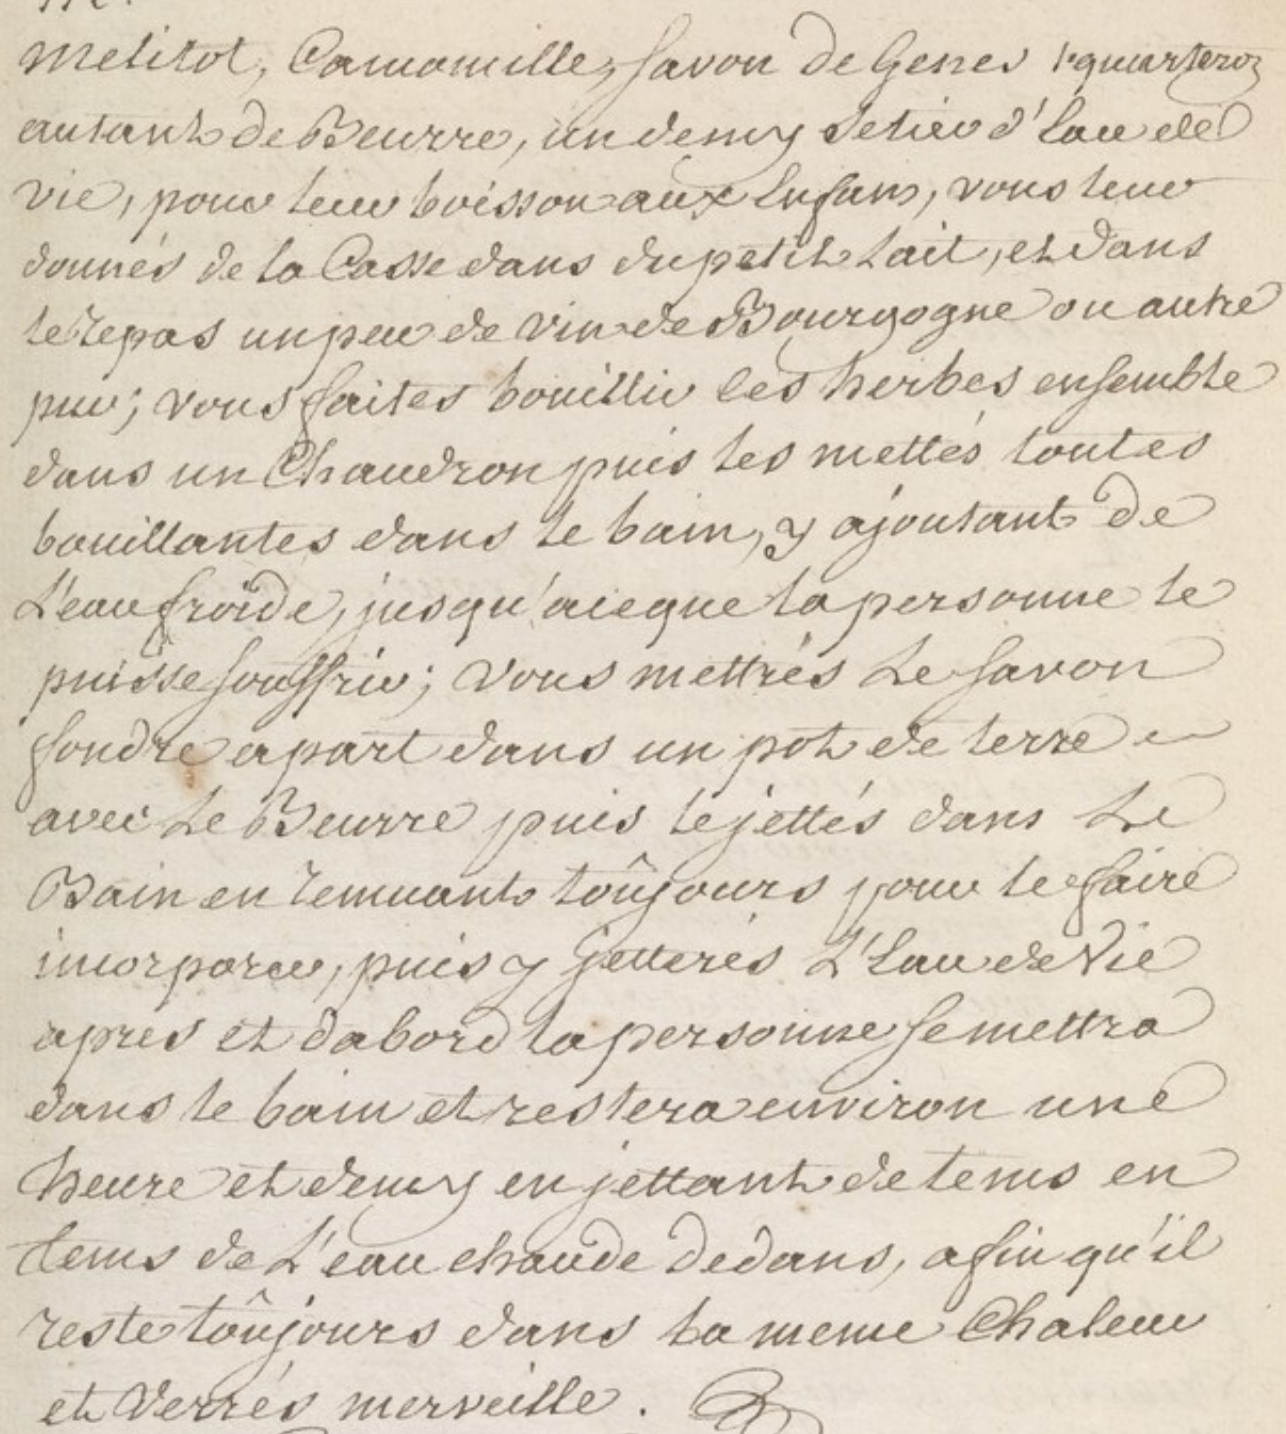 melitot, Camomille, Savon de Genes 1 quarteron
autant de Beurre, un demy Setier d'Eau de
vie, pour leur boisson aux Enfans, vous leur
donnés de la Casse dans du petit Lait, et dans
le repas un peu de vin de Bourgogne ou autre
pur; vous faites bouillir les herbes ensemble
dans un Chaudron puis les mettés toutes
bouillantes dans le bain, y ajoutant de
L'eau froide, jusqu'a ce que la personne le
puisse souffrir; vous mettrés Le Savon
fondre apart dans un pot de terre
avec Le Beurre puis le jettés dans Le
Bain en remuant toûjours pour le faire
incorporer, puis y jetterés L'Eau de Vie
aprés et dabord la personne se mettra
dans le bain et restera environ une
heure et demy en jettant de tems en
tems de L'eau chaude dedans, afin qu'il
reste toûjours dans La meme Chaleur
et Verrés merveille.